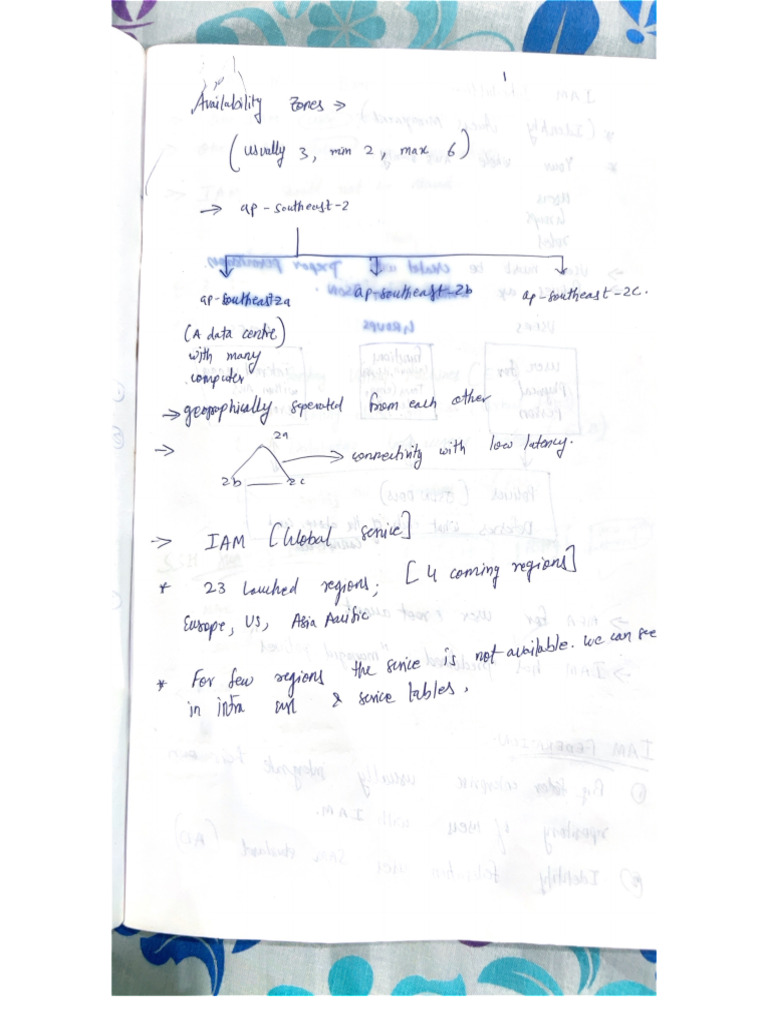 1
Availability Zones →
(usually 3, min 2, max 6)
→ ap-southeast-2
ap-southeast2a ap-southeast-2b ap-southeast-2c.
(A data centre)
with many
computer
→ geographically seperated from each other
→ 2a
→ connectivity with low latency.
2b 2c
→ IAM [Global service]
* 23 Lauched regions; [4 coming regions]
Europe, US, Asia Pacific
* For few regions the service is not available. we can see
in infra & service tables.